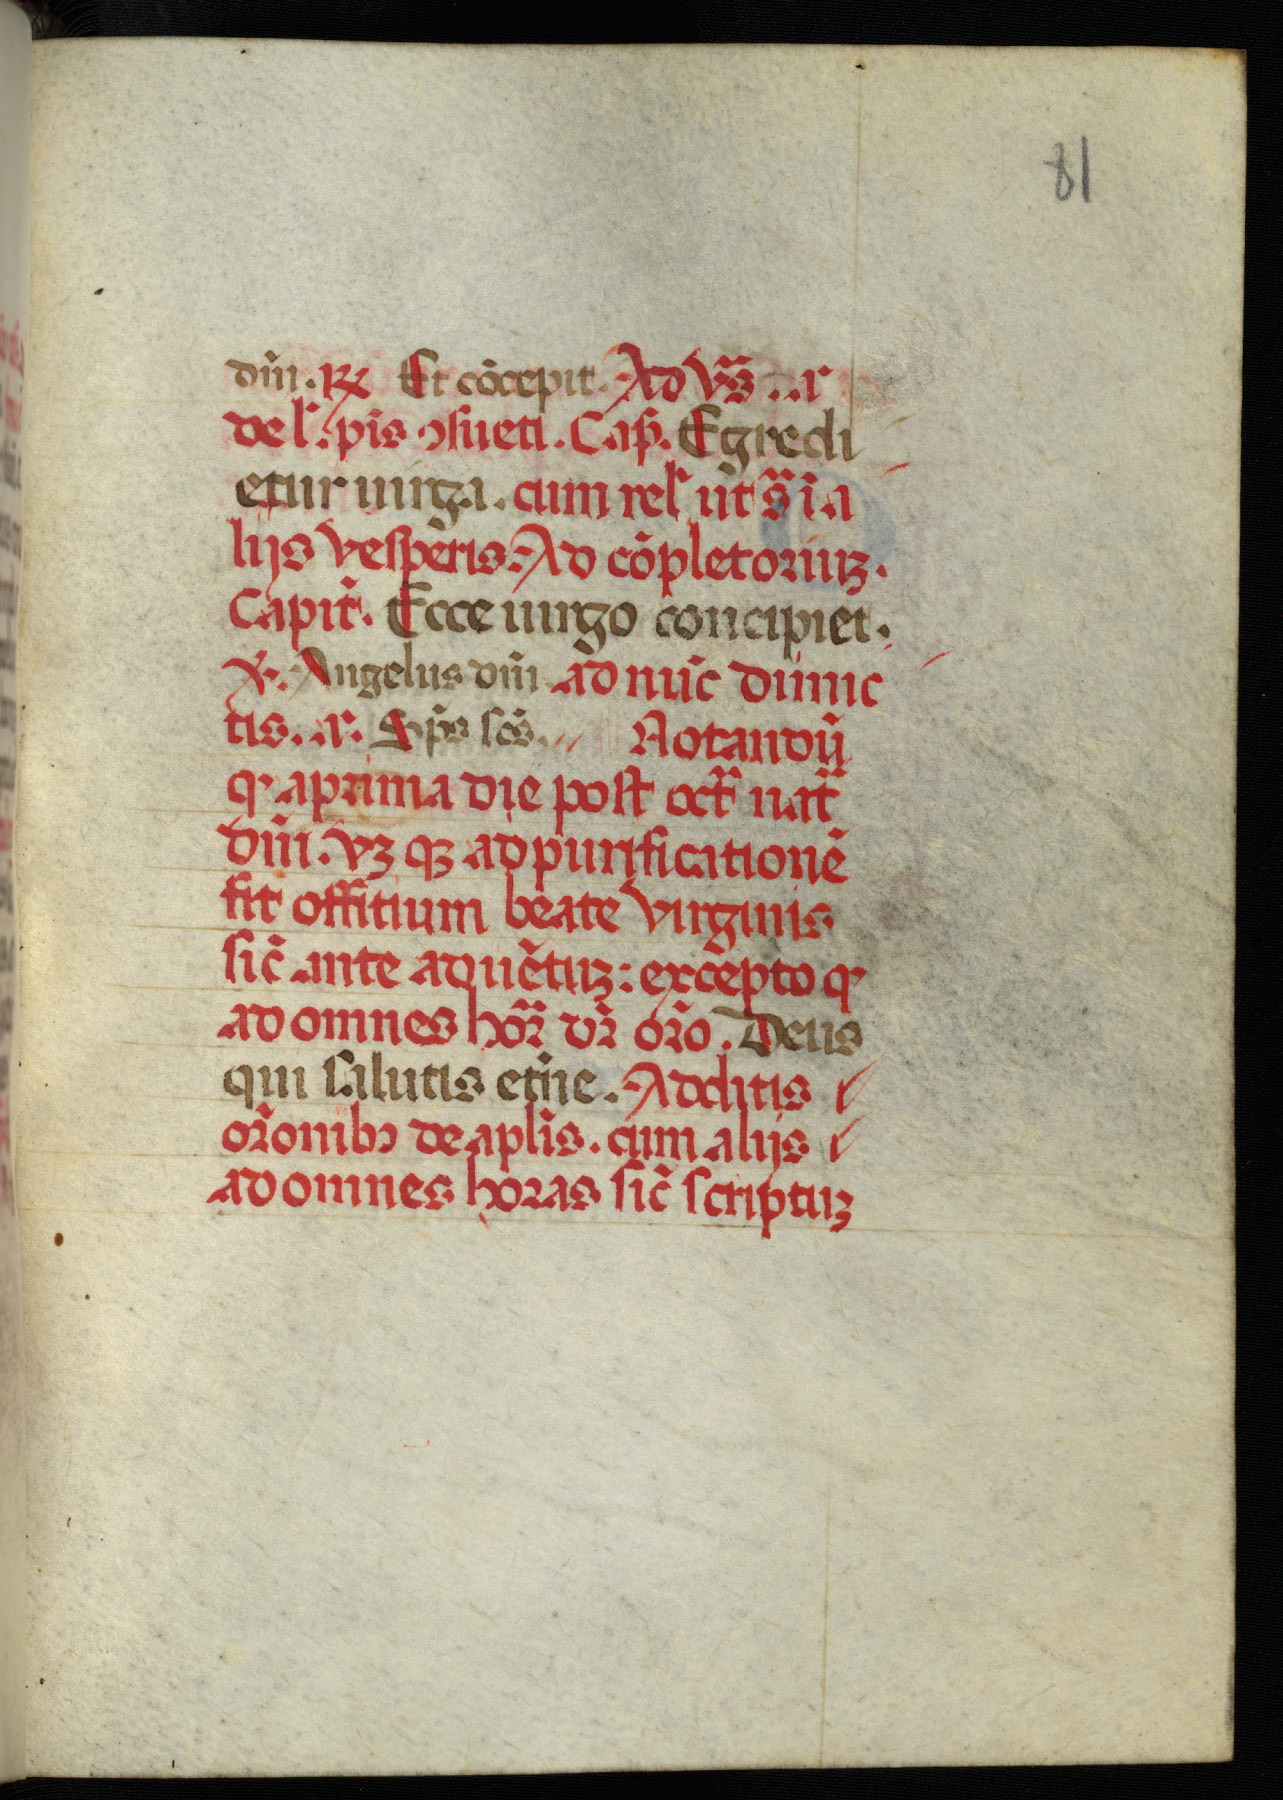 81
dñi. ℞ Et cõcepit. Ad vs̃ .a.
del. ps̃ ꝯsueti. Cap̃. Egredi
etur uirga. cum rel ut̃ s̃ i a
lijs vesperis. Ad cõpletoriuꝫ.
Capit̃. Ecce uirgo concipiet.
℣. Angelus dñi ad nũc dimic
tis. .a. Sp̃s scs̃. Notandũ
ꝙ a prima die post oct̃ nat̃
dñi. vꝫ qꝫ ad purificationẽ
fit offitium beate virginis
sic̃ ante aduẽtuꝫ: excepto ꝙ
ad omnes hor̃ dr̃ or̃o. Deus
qui salutis et̃ne. Additis
or̃onibꝫ de apl̃is. cum alijs
ad omnes horas sic̃ scriptuꝫ